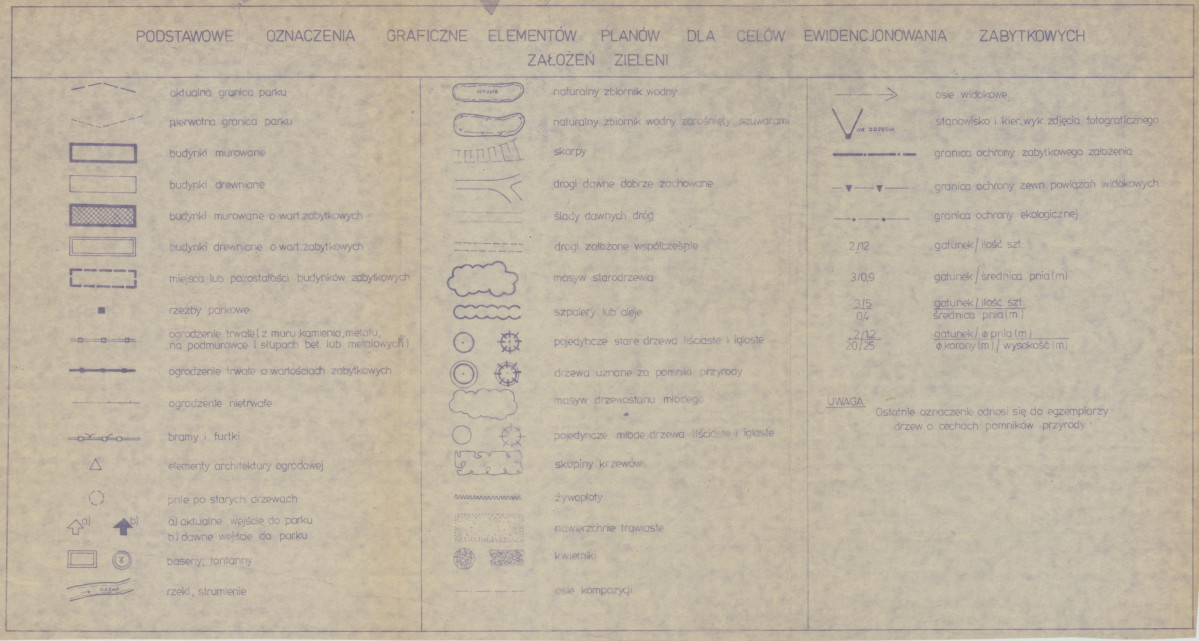 PODSTAWOWE OZNACZENIA GRAFICZNE ELEMENTÓW PLANÓW DLA CELÓW EWIDENCJONOWANIA ZABYTKOWYCH
ZAŁOŻEŃ ZIELENI
aktualna granica parku
pierwotna granica parku
budynki murowane
budynki drewniane
budynki murowane o wart. zabytkowych
budynki drewniane o wart. zabytkowych
miejsca lub pozostałości budynków zabytkowych
rzeźby parkowe
ogrodzenie trwałe (z muru, kamienia, metalu,
na podmurówce i słupach bet. lub metalowych)
ogrodzenie trwałe o wartościach zabytkowych
ogrodzenie nietrwałe
bramy i furtki
elementy architektury ogrodowej
pnie po starych drzewach
a) b) a) aktualne wejście do parku
b) dawne wejście do parku
baseny, fontanny
rzeki, strumienie
naturalny zbiornik wodny
naturalny zbiornik wodny zarośnięty szuwarami
skarpy
drogi dawne dobrze zachowane
ślady dawnych dróg
drogi założone współcześnie
masyw starodrzewia
szpalery lub aleje
pojedyńcze stare drzewa liściaste i iglaste
drzewa uznane za pomniki przyrody
masyw drzewostanu młodego
pojedyńcze młode drzewa liściaste i iglaste
skupiny krzewów
żywopłoty
nawierzchnie trawiaste
kwietniki
osie kompozycji
osie widokowe
NR ZDJĘCIA stanowisko i kier. wyk. zdjęcia fotograficznego
granica ochrony zabytkowego założenia
granica ochrony zewn. powiązań widokowych
granica ochrony ekologicznej
2/12 gatunek/ilość szt.
3/0,9 gatunek/średnica pnia (m)
3/5 gatunek/ilość szt.
0,4 średnica pnia (m)
2/1,2 gatunek/ø pnia (m)
20/25 ø korony (m)/wysokość (m)
UWAGA
Ostatnie oznaczenie odnosi się do egzemplarzy
drzew o cechach pomników przyrody